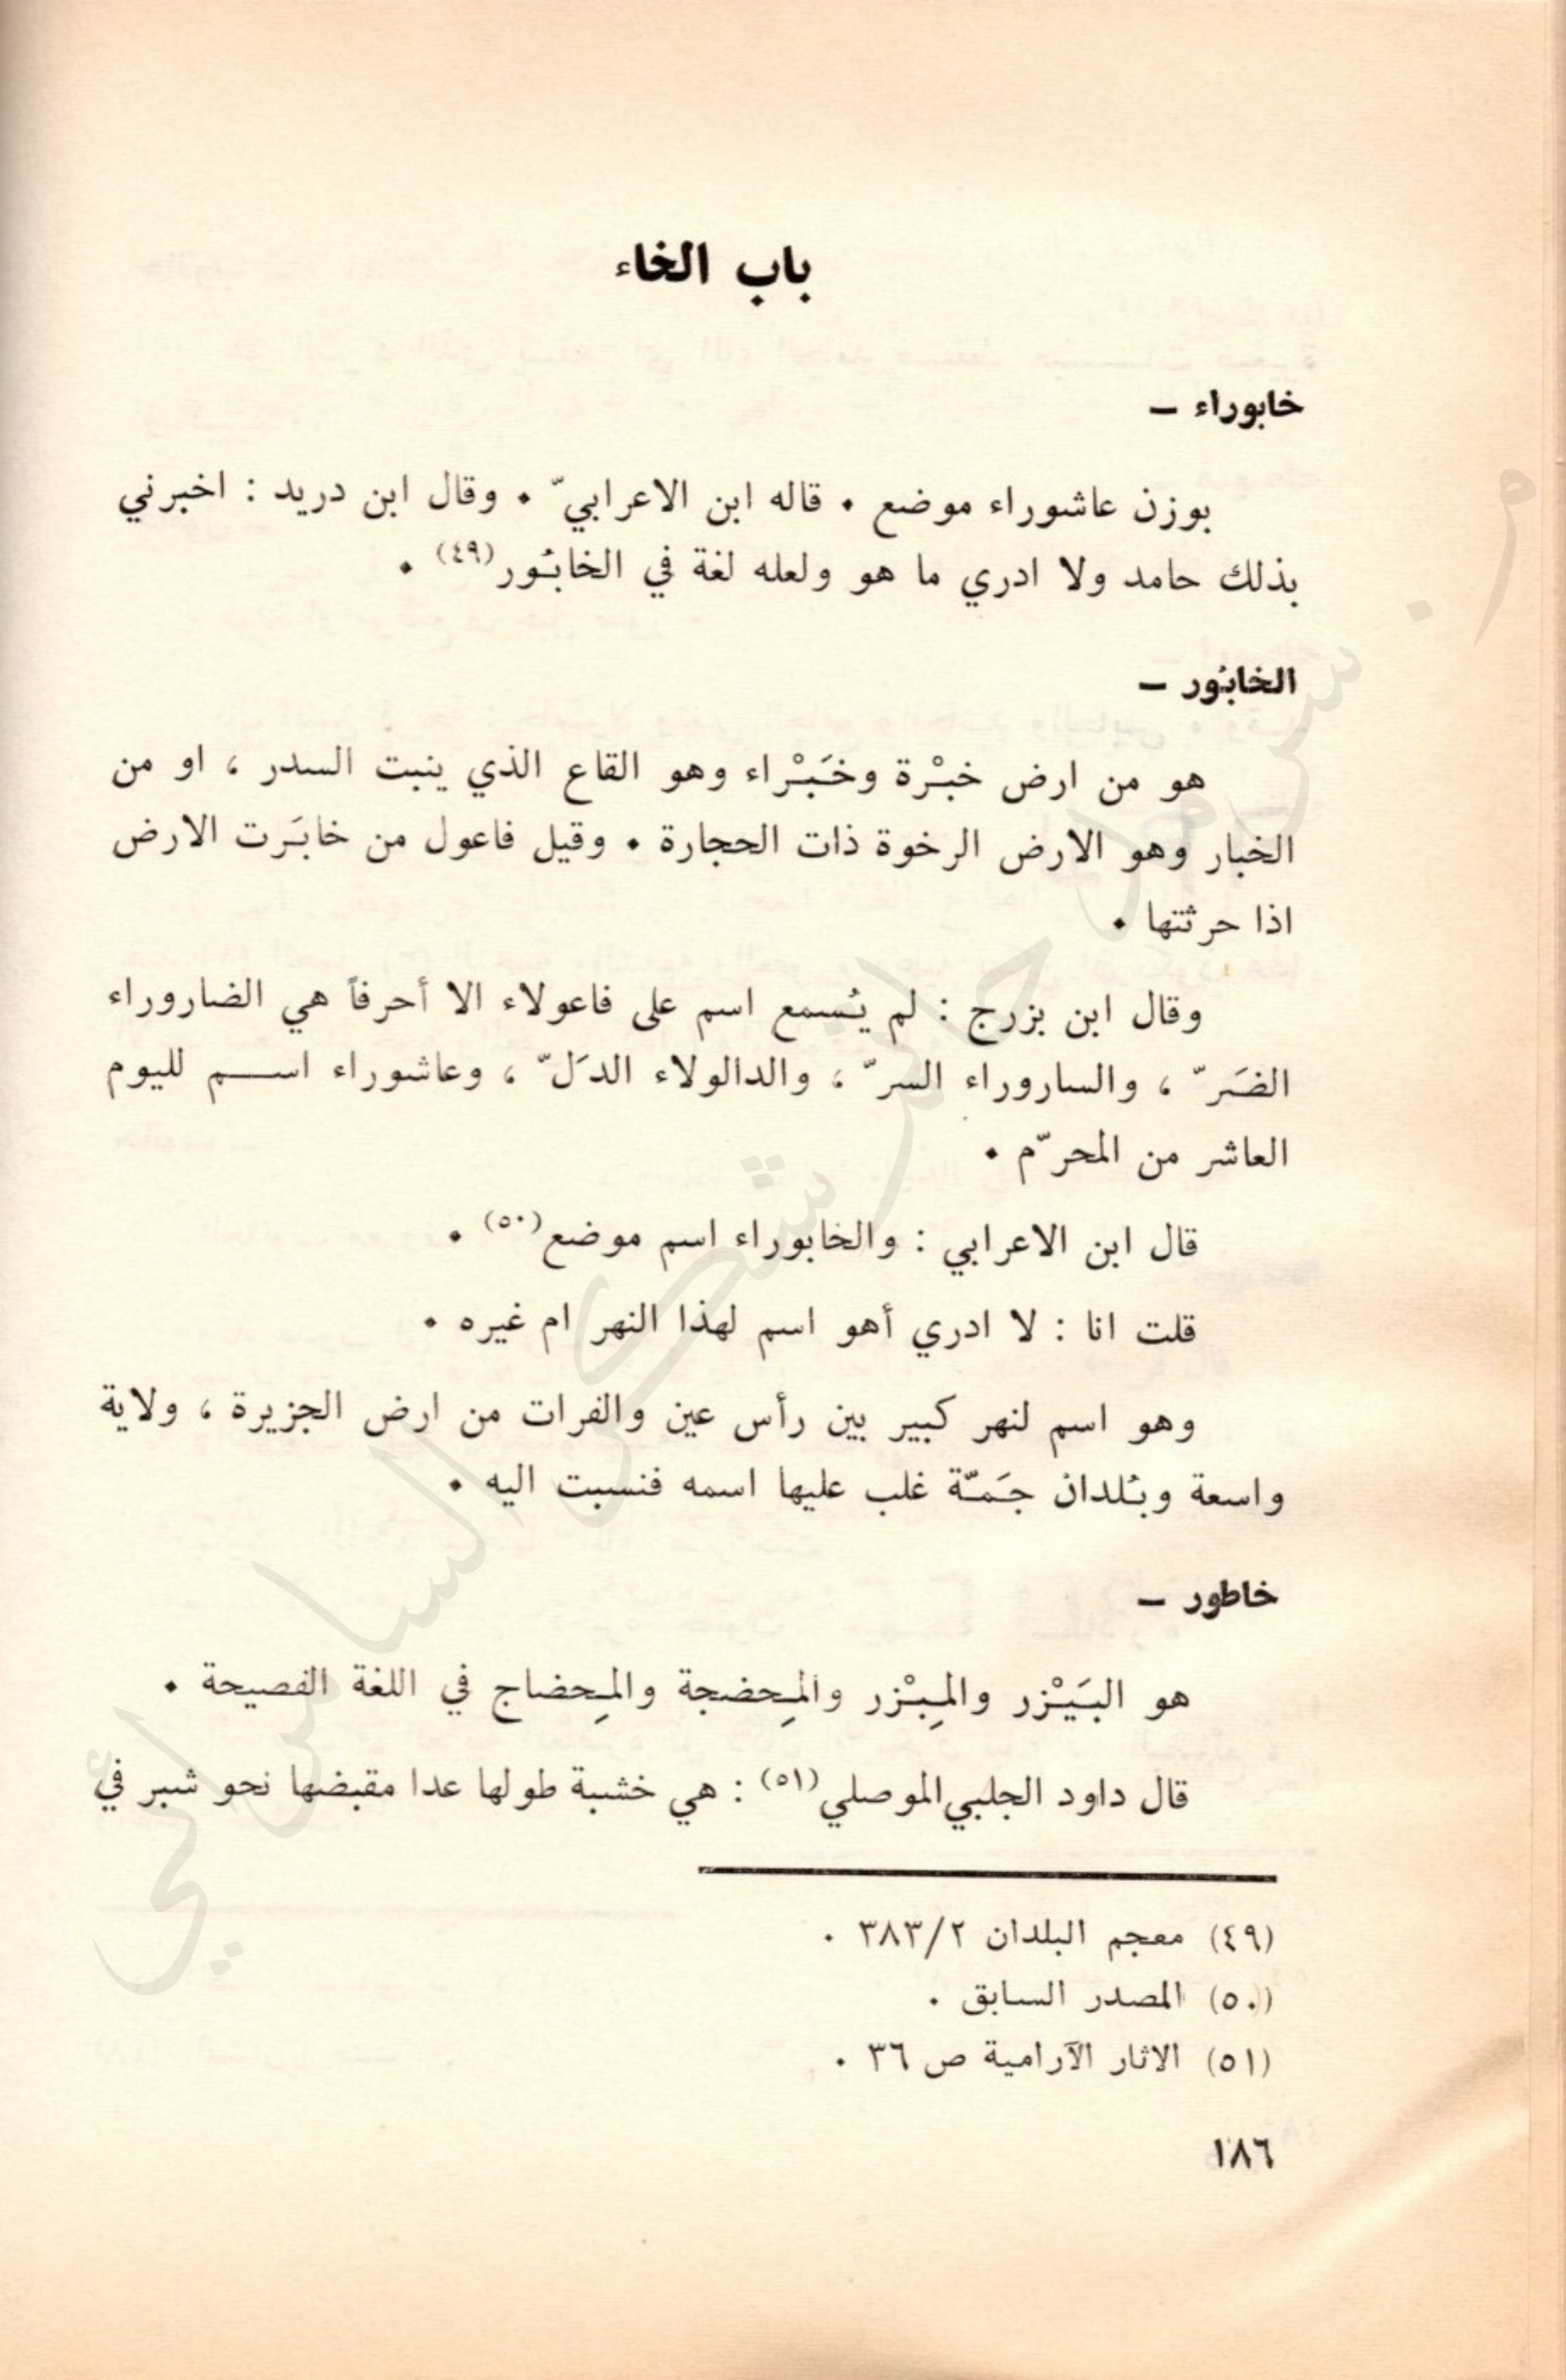 باب الخاء
خابوراء –
بوزن عاشوراء موضع . قاله ابن الاعرابيّ . وقال ابن دريد : اخبرني
بذلك حامد ولا ادري ما هو ولعله لغة في الخابُور(٤٩) .
الخابُور –
هو من ارض خبْرة وخَبْراء وهو القاع الذي ينبت السدر ، او من
الخبار وهو الارض الرخوة ذات الحجارة . وقيل فاعول من خابَرت الارض
اذا حرثتها .
وقال ابن بزرج : لم يُسمع اسم على فاعولاء الا أحرفاً هي الضاروراء
الضَرّ ، والساروراء السرّ ، والدالولاء الدَلّ ، وعاشوراء اسم لليوم
العاشر من المحرّم .
قال ابن الاعرابي : والخابوراء اسم موضع(٥٠) .
قلت انا : لا ادري أهو اسم لهذا النهر ام غيره .
وهو اسم لنهر كبير بين رأس عين والفرات من ارض الجزيرة ، ولاية
واسعة وبُلدان جَمّة غلب عليها اسمه فنسبت اليه .
خاطور –
هو البَيْزر والمِبْزر والمِحضجة والمِحضاج في اللغة الفصيحة .
قال داود الجلبي الموصلي(٥١) : هي خشبة طولها عدا مقبضها نحو شبر في
(٤٩) معجم البلدان ٣٨٣/٢ .
(٥٠) المصدر السابق .
(٥١) الاثار الآرامية ص ٣٦ .
١٨٦